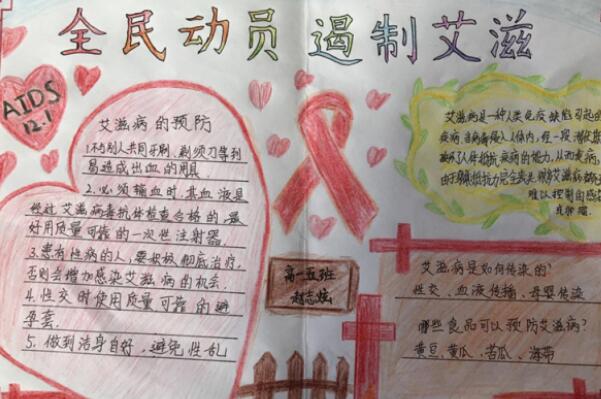 全民动员遏制艾滋
AIDS
12.1
艾滋病的预防
1.不与别人共同牙刷、剃须刀等到
易造成出血的用具
2.必须输血时,其血液是
经过艾滋病毒抗体检查合格的,最
好用质量可靠的一次性注射器.
3.患有性病的人,要积极彻底治疗,
否则会增加感染艾滋病的机会.
4.性交时使用质量可靠的避
孕套.
5.做到洁身自好,避免性乱
高一五班
赵志炫
艾滋病是一种人类免疫缺陷引起的
疾病,当病毒侵入人体内,经一段潜伏
抵抗疾病的能力,从而
由于 抵抗力 艾滋病
难以控制的感染
艾滋病是如何传染的?
性交、血液传输、母婴传染
哪些食品可以预防艾滋病?
黄豆、黄瓜、苦瓜、海带